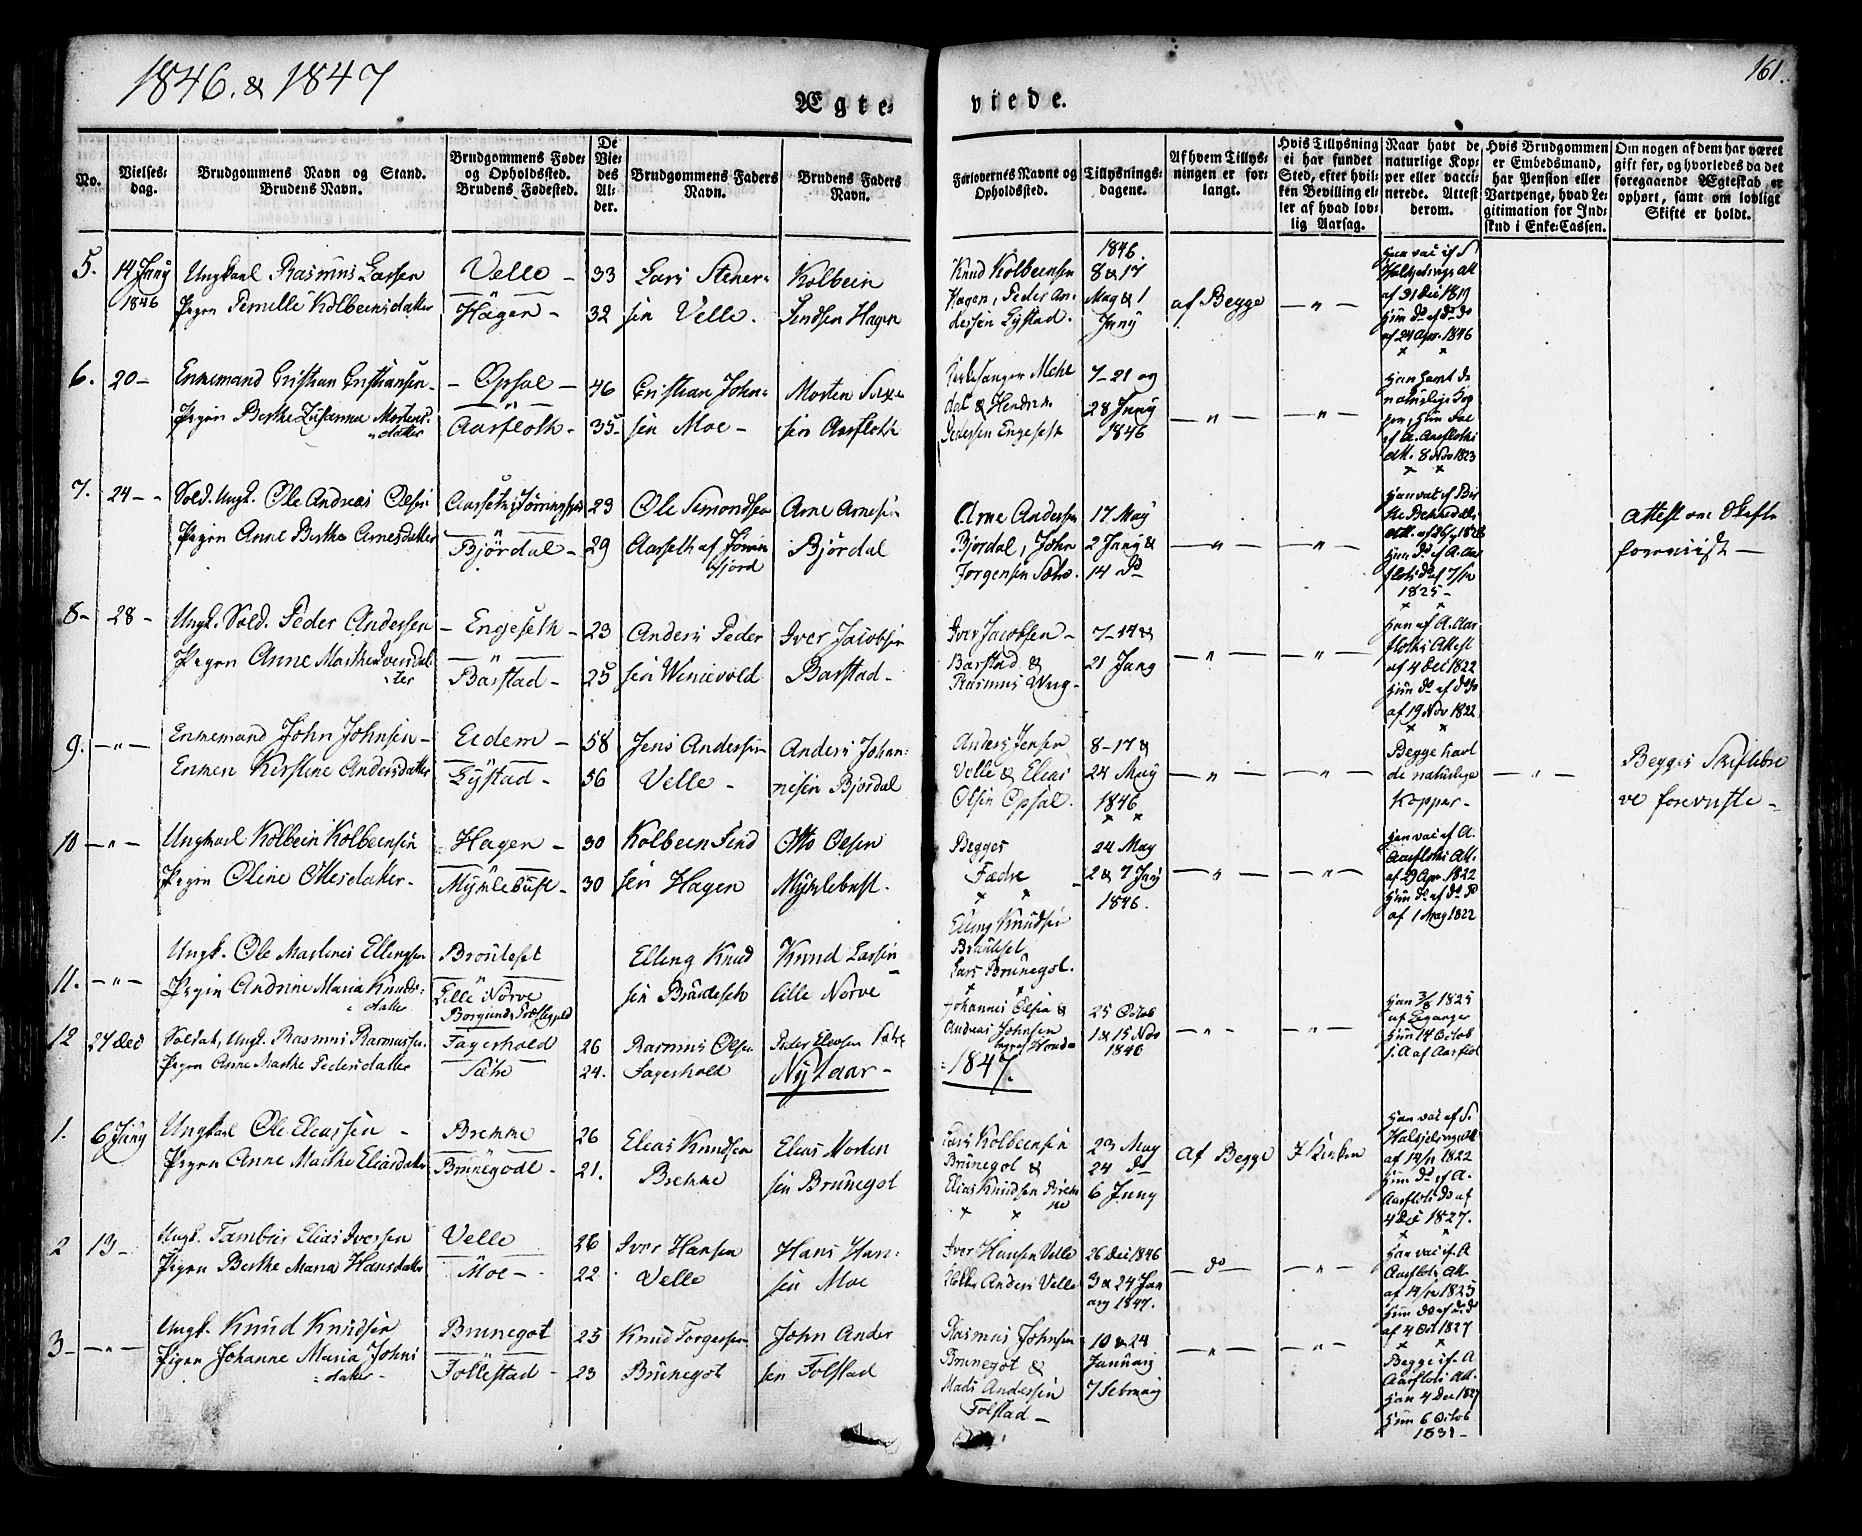 1846. & 1847
161.
Ægte-
viede.
No.
Vielses-
dag.
Brudgommens Navn og Stand.
Brudens Navn.
Brudgommens Føde-
og Opholdssted.
Brudens Fødested.
De
Vie-
des
Al-
der.
Brudgommens Faders
Navn.
Brudens Faders
Navn.
Forlovernes Navne og
Opholdssted.
Tillysnings-
dagene.
Af hvem Tillys-
ningen er for-
langt.
Hvis Tillysning
ei har fundet
Sted, efter hvil-
ken Bevilling el-
ler af hvad lov-
lig Aarsag.
Naar havt de
naturlige Kop-
per eller vacci-
nerede. Attest
derom.
Hvis Brudgommen
er Embedsmand,
har Pension eller
Vartpenge, hvad Le-
gitimation for Ind-
skud i Enke-Cassen.
Om nogen af dem har været
gift før, og hvorledes da det
foregaaende Ægteskab er
ophørt, samt om lovligt
Skifte er holdt.
5. 14 Juny
1846
Ungkarl Rasmus Larsen
Pigen Pernille Kolbeensdatter
Velle –
Hagen –
33
32
Lars Stener-
sen Velle.
Kolbein
Sendsen Hagen
Knud Kolbeensen
Hagen, Peder An-
dersen Lystad.
1846.
8 & 17
May & 1
Juny
af Begge
– " –
Han vac. af S
Halkjelsvigs Att
af 31 Dec 1819
Hun do af do do
af 24 Apr. 1846
6. 20 –
Enkemand Cristian Cristiansen
Pigen Berthe Zusanna Mortens-
datter
– Opsal –
Aarfloth –
46
35
Cristian John-
sen Moe –
Morten Sixe
sen Aarflothe
Kirkesanger Mehl
dal & Hendrik
Pedersen Engeseth
7 – 21 og
28 Juny
1846
– " –
– " –
Han havt de
naturlige Kop
per, Hun vac
af A. Aarfloths
Att. 8 Nov 1823
7. 24 – –
Sold. Ungk. Ole Andreas Olsen
Pigen Anne Berthe Arnesdatter
Aarseth i Jöringfjord
Björdal –
23
29
Ole Simondsen
Aarseth af Jörin
gfjord
Arne Arnesen
Bjórdal
Arne Andersen
Bjórdal, John
Jorgensen Sæth.
17 May
2 Juny &
14 do
– " –
– " –
1825 –
Attest om Skifte
foreviist –
8 – 28 –
Ungk. Sold. Peder Andersen
Pigen Anne Marthe Iversdat
ter
– Engeseth –
Barstad –
23
25
Anders Peder
sen Winievold
Iver Jacobsen
Barstad –
Iver Jacobsen –
Barstad &
Rasmus Ung –
7 – 14 &
21 Juny
– " –
– " –
Han af A. Aar
floths Attest
af 4 Dec 1822
Hun do af do do
af 19 Nov 1822
9. – " –
Enkemand John Johnsen –
Enken Kirstine Andersdatter
Eidem –
Lystad –
58
56
Jens Andersen
Velle –
Anders Johan-
nesen Bjordal
Anders Jensen
Velle & Elias
Olsen Opsal.
8 – 17 &
24 May
1846
– " –
– " –
Begge havt
de naturlige
Kopper –
– " –
Begges Skiftebre
ve foreviiste –
10 – " –
Ungkarl Kolbein Kolbeensen
Pigen Oline Ottesdatter –
Hagen –
Myklebust –
30
30
Kolbeen Send
sen Hagen
Otto Olsen
Myklebust.
Begges
Fædre
24 May
2 & 7 Juny
1846.
– " –
– " –
Han vac. af A.
Aarfloths Att.
af 29 Apr. 1822
Hun do af do do
af 1 May 1822
11. – " –
Ungk. Ole Martines Ellingsen
Pigen Andrine Maria Knuds-
datter
Brouteset
Lille Norve
Borgunds Præstegjeld
Elling Knud
sen Brauteseth
Knud Larsen
lille Norve
Elling Knudsen
Brautset
Lars Brunegot.
12 27 Dec
Soldat, Ungk. Rasmus Rasmussen
Pigen Anne Marthe Pedersdatter
Fagerhold
Sætre
26
24.
Rasmus Olsen
Fagerhold
Peder Eliasen Sætre
Johannes Olsen &
Andreas Johnsen
25 Octob
1 & 15 Nov
1846
– " –
– " –
Han 3/8 1825
af Eganger
Hun 14 Octob
Nyt aar –
1847.
1. 6 Juny
Ungkarl Ole Eleassen –
Pigen Anne Marthe Eliasdatter
Brekke
Brunegodt –
26
21.
Elias Knudsen
Brekke
Elias Morten
sen Brunegot
Lars Kolbeensen
Brunegot &
Elias Knudsen Brek
ke
23 May
24 do
6 Juny
Af Begge
I Kirken
Han vac af S.
Halkjelsvigs Att
af 14/11 1822
Hun do af A.
Aarfloths do af
4 Dec 1827.
2 13 –
Ungk. Tambur Elias Iversen
Pigen Berthe Maria Hansdatter
Velle
Moe –
26
22
Iver Hansen
Velle
Hans Han-
sen Moe
Iver Hansen Velle
Anders Velle
26 Dec 1846
3 & 24 Jan
uary 1847.
– do –
– " –
Han vac af A
Aarfloths Att.
af 14/12 1825
Hun do af do do
af 4 Oct 1827
3 – – " –
Ungk. Knud Knudsen
Pigen Johanne Maria Johns
datter –
Brunegot
Follestad –
25
23
Knud Torgersen
Brunegot
John Ander
sen Folstad
Rasmus Johnsen
Brunegot &
Mads Andersen
Folstad –
10 & 24
January
7 February
– " –
– " –
Begge af A
Aarfloths Att.
Han 4 Dec 1827
Hun 6 Octob
1831 –